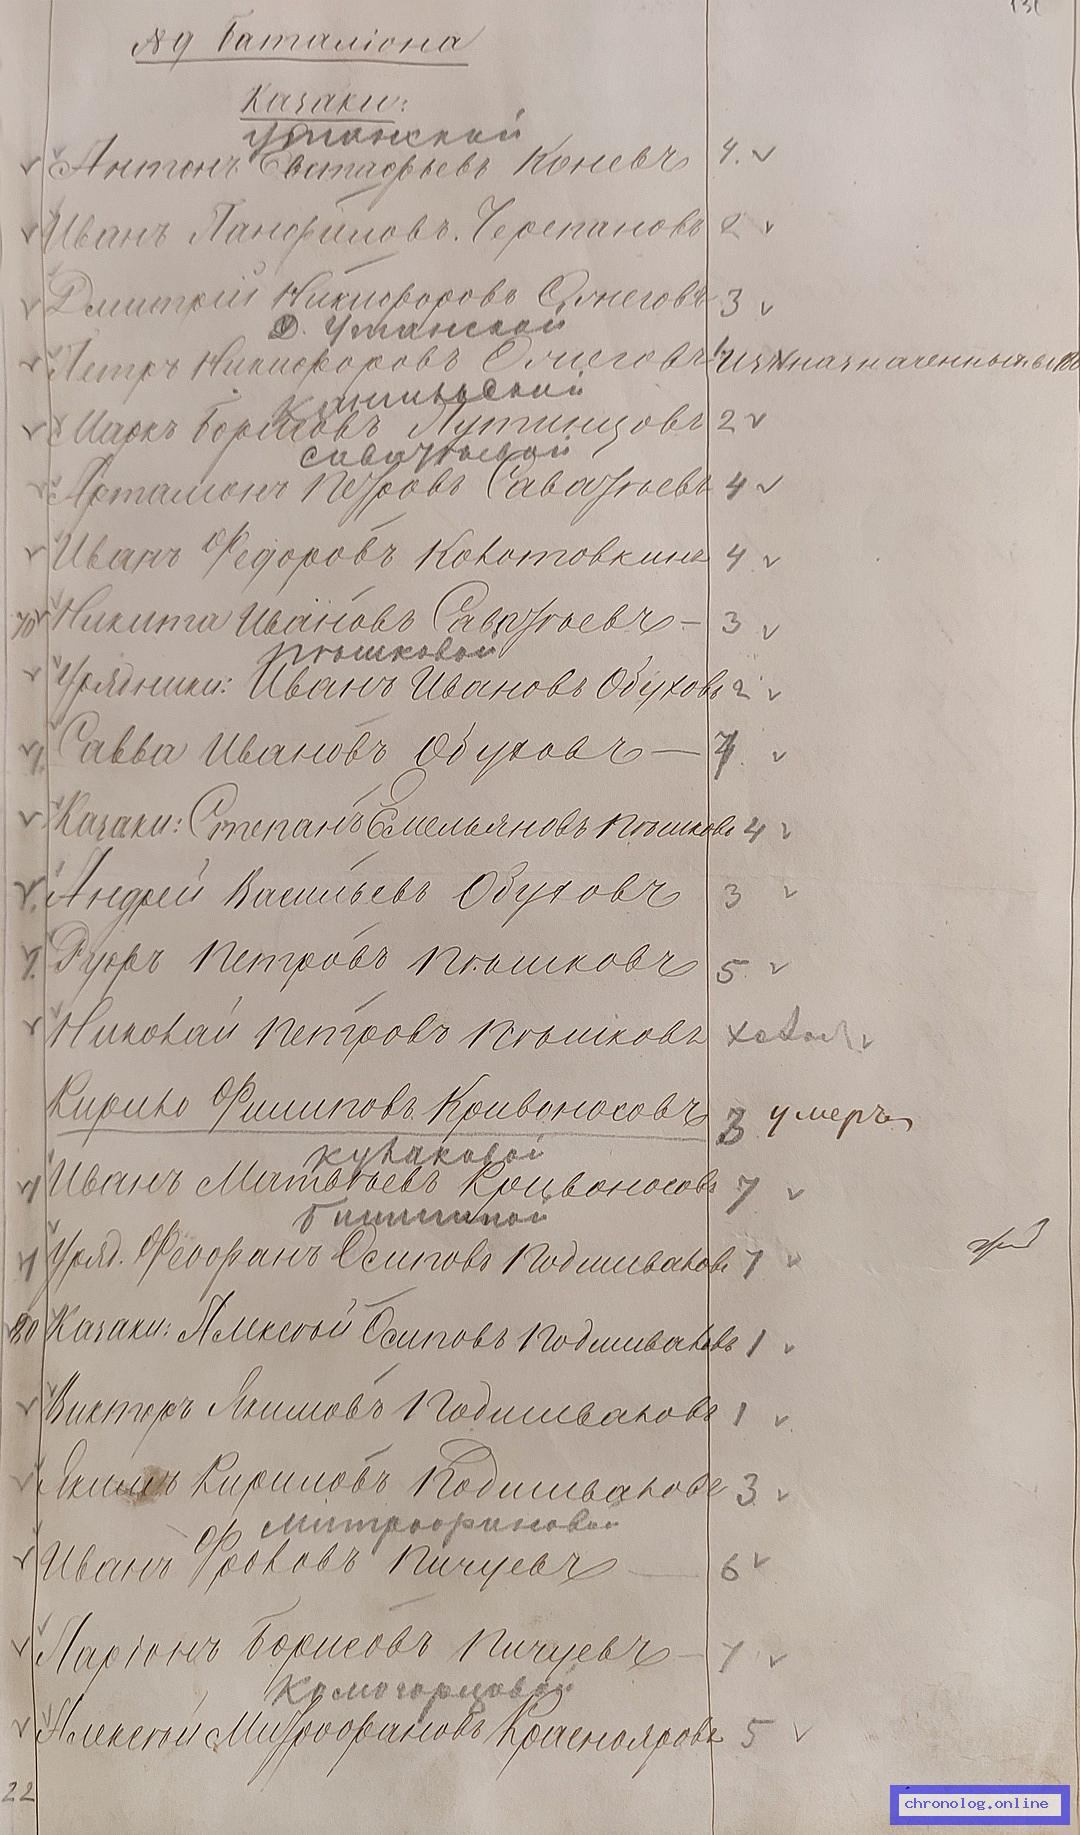 131
№ 9 Баталіона
Казаки:
Антонъ Евстафьевъ Коневъ 4.
Иванъ Панфиловъ. Черепановъ 2
Дмитрій Никифоровъ 3
Петръ Никифоровъ
Маркъ Борисовъ Путинцовъ 2
Савватѣевой
Артамонъ Петровъ Савватѣевъ 4
Иванъ Федоровъ Колотовкинъ 4
Никита Ивановъ Савватѣевъ – 3
Пѣшковой
Урядники: Иванъ Ивановъ Обуховъ 2
Савва Ивановъ Обуховъ —
Казаки: Степанъ Емельяновъ Пѣшковъ 4
Андрей Васильевъ Обуховъ 3
Петровъ Пѣшковъ 5
Николай Петровъ Пѣшковъ
Кирило Филиповъ Кривоносовъ 3 умеръ
Кулаковой
Иванъ Матвѣевъ Кривоносовъ 7
Уряд. Феофанъ Осиповъ Подшиваловъ 7
80 Казаки: Алексѣй Осиповъ Подшиваловъ 1
Викторъ Якимовъ Подшиваловъ 1
Якимъ Кириловъ Подшиваловъ 3
Митрофановой
Иванъ Фроловъ Пичуевъ — 6
Ларіонъ Борисовъ Пичуевъ – 7
Комогорцовой
Алексѣй Митрофановъ Краснояровъ 5
22
chronolog.online